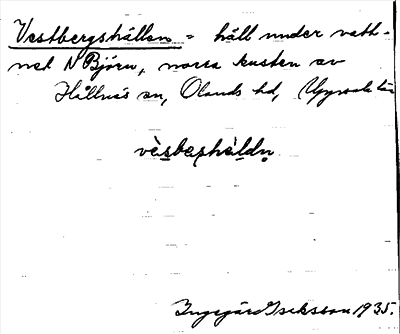 Vestbergshällen = häll under vatt-
net N Björn, norra kusten av
Hållnäs sn, Olands hd, Uppsala län
vèsbærhäldn
Ingegärd Isaksson 1935.